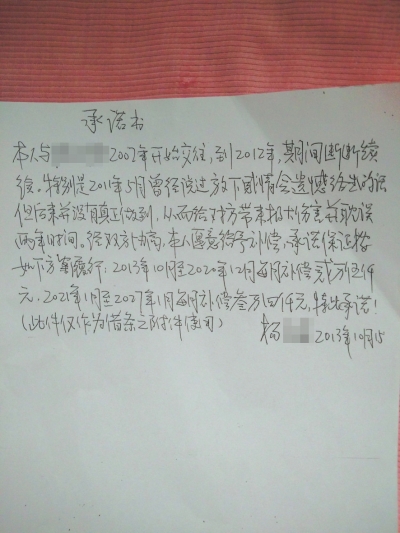 承诺书
本人与 2007年开始交往,到2012年,期间断断续
续。特别是2011年5月曾经说过放下感情会遗憾终生的话
但后来并没有真正做到,从而给对方带来极大伤害并耽误
两年时间。经双方计商,本人愿意给予补偿,承诺保证按
如下方案履行:2013年10月至2020年12月每月补偿贰万伍仟
元,2021年1月至2027年1月每月补偿叁万四仟元,特此承诺!
(此件仅作为借条之附件使用)
杨 2013年10月15